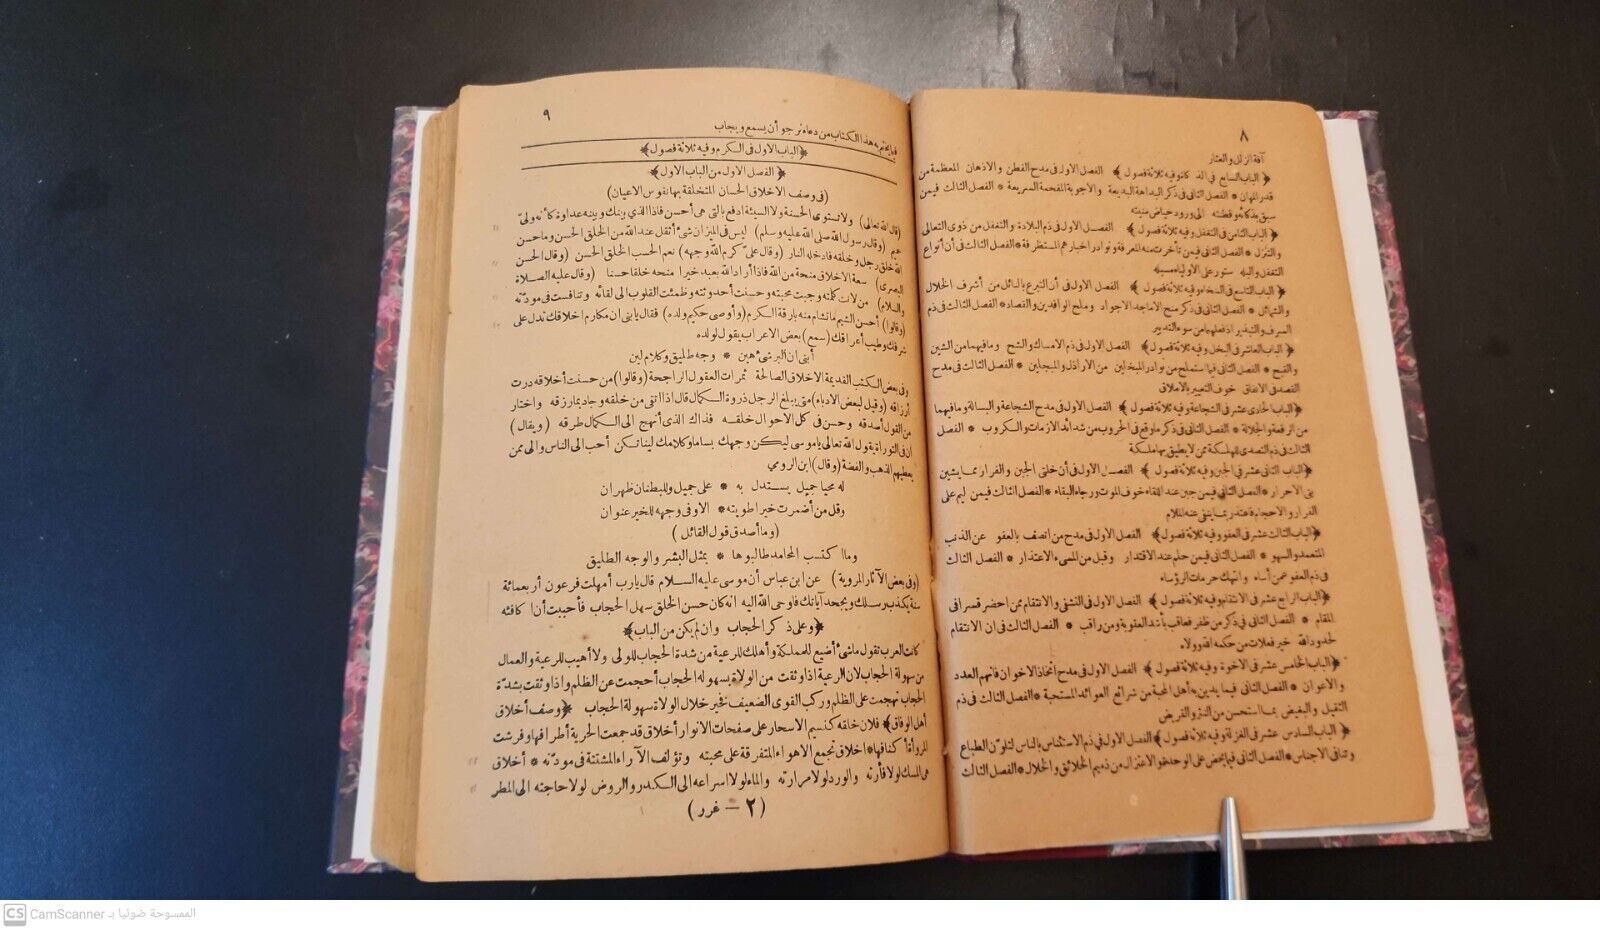 ٨
آفة الزلل والعثار
﴿الباب السابع في الذكاء وفيه ثلاثة فصول﴾ الفصل الاول في مدح الفطن والاذهان المعظمة من
قدر المهان * الفصل الثاني في ذكر البداهة البديعة والاجوبة المفحمة السريعة * الفصل الثالث فيمن
سبق بذكائه وفطنته الى ورود حياض منيته
﴿الباب الثامن في التغفل وفيه ثلاثة فصول﴾ الفصل الاول في ذم البلادة والتغفل من ذوى التعالى
والتنزل * الفصل الثاني فيمن تأخرت منه المعرفة ونوادر اخبارهم المستظرفة * الفصل الثالث في أن أنواع
التغفل والبله ستور على الأولياء مسبله
﴿الباب التاسع في السخاء وفيه ثلاثة فصول﴾ الفصل الاول في أن التبرع بالنائل من أشرف الخلال
والشمائل * الفصل الثاني في ذكر منح الاماجد الاجواد وملح الوافدين والقصاد * الفصل الثالث في ذم
السرف والتبذير اذ فعلهما من سوء التدبير
﴿الباب العاشر في البخل وفيه ثلاثة فصول﴾ الفصل الاول في ذم الامساك والشح وما فيهما من الشين
والقبح * الفصل الثاني فيما استملح من نوادر المبخلين من الاراذل والمبجلين * الفصل الثالث في مدح
القصد في الانفاق خوف التعيير بالاملاق
﴿الباب الحادى عشر في الشجاعة وفيه ثلاثة فصول﴾ الفصل الاول في مدح الشجاعة والبسالة وما فيهما
من الرفعة والجلالة * الفصل الثاني في ذكر ما وقع في الحروب من شدائد الازمات والكروب * الفصل
الثالث في ذم التصدى للهلكة ممن لا يطيق بها ملكة
﴿الباب الثاني عشر في الجبن وفيه ثلاثة فصول﴾ الفصل الاول في أن خلتى الجبن والفرار مما يشين
بنى الاحرار * الفصل الثاني فيمن جبن عند اللقاء خوف الموت ورجاء البقاء * الفصل الثالث فيمن ليم على
الفرار والاحجام فاعتذر بما ينتفى عنه الملام
﴿الباب الثالث عشر في العفو وفيه ثلاثة فصول﴾ الفصل الاول في مدح من اتصف بالعفو عن الذنب
المتعمد والسهو * الفصل الثاني فيمن حلم عند الاقتدار وقبل من المسىء الاعتذار * الفصل الثالث
في ذم العفو عمن أساء وانتهك حرمات الرؤساء
﴿الباب الرابع عشر في الانتقام وفيه ثلاثة فصول﴾ الفصل الاول في التشفى والانتقام ممن احضر قسرا في
المقام * الفصل الثاني في ذكر من ظفر فعاقب بأشد العقوبة ومن راقب * الفصل الثالث في ان الانتقام
لحدود الله خير فعلات من حكمه الله وولاه
﴿الباب الخامس عشر في الاخوة وفيه ثلاثة فصول﴾ الفصل الاول في مدح اتخاذ الاخوان فانهم العدد
والاعوان * الفصل الثاني فيما يدين به أهل المحبة من شرائع العوائد المستحبة * الفصل الثالث في ذم
الثقيل والبغيض بما استحسن من النثر والقريض
﴿الباب السادس عشر في العزلة وفيه ثلاثة فصول﴾ الفصل الاول في ذم الاستئناس بالناس لتلون الطباع
وتنافى الاجناس * الفصل الثاني فيما يحض على الوحدة والاعتزال من ذميم الخلائق والخلال * الفصل الثالث
٩
فيما يختم به هذا الكتاب من دعاء نرجو أن يسمع ويجاب
﴿الباب الاول في الكرم وفيه ثلاثة فصول﴾
﴿الفصل الاول من الباب الاول﴾
(في وصف الاخلاق الحسان المتخلقة بها نفوس الاعيان)
(قال الله تعالى) ولا تستوى الحسنة ولا السيئة ادفع بالتى هى أحسن فاذا الذى بينك وبينه عداوة كأنه ولىّ
حميم (وقال رسول الله صلى الله عليه وسلم) ليس في الميزان شئ أثقل عند الله من الخلق الحسن وما حسن
الله خلق رجل وخلقه فادخله النار (وقال علىّ كرم الله وجهه) نعم الحسب الخلق الحسن (وقال الحسن
البصرى) سعة الاخلاق منحة من الله فاذا أراد الله بعبد خيرا منحه خلقا حسنا (وقال عليه الصلاة
والسلام) من لانت كلمته وجبت محبته وحسنت أحدوثته وظمئت القلوب الى لقائه وتنافست في مودته
(وقالوا) أحسن الشيم ما تشام منه بارقة الكرم (وأوصى حكيم ولده) فقال يا بنى ان مكارم اخلاقك تدل على
شرفك وطيب أعراقك (سمع) بعض الاعراب يقول لولده
أبنى ان البر شئ هين * وجه طليق وكلام لين
وفي بعض الكتب القديمة الاخلاق الصالحة ثمرات العقول الراجحة (وقالوا) من حسنت أخلاقه درت
أرزاقه (وقيل لبعض الادباء) متى يبلغ الرجل ذروة الكمال قال اذا اتقى من خلقه وجاد بما رزقه واختار
من القول أصدقه وحسن في كل الاحوال خلقه فذاك الذى أنهج الى الكمال طرقه (ويقال)
ان في التوراة يقول الله تعالى يا موسى ليكن وجهك بساما وكلامك لينا تكن أحب الى الناس والى ممن
يعطيهم الذهب والفضة (وقال) ابن الرومي
له محيا جميل يستدل به * على جميل وللبطنان ظهران
وقل من أضمرت خيرا طويته * الا وفى وجهه للخير عنوان
(وما أصدق قول القائل)
وما اكتسب المحامد طالبوها * بمثل البشر والوجه الطليق
(وفى بعض الآثار المروية) عن ابن عباس أن موسى عليه السلام قال يا رب أمهلت فرعون أربعمائة
سنة يكذب رسلك ويجحد آياتك فاوحى الله اليه انه كان حسن الخلق سهل الحجاب فأحببت أن أكافئه
﴿وعلى ذكر الحجاب وان لم يكن من الباب﴾
كانت العرب تقول ما شئ أضيع للمملكة وأهلك للرعية من شدة الحجاب للوالى ولا أهيب للرعية والعمال
من سهولة الحجاب لان الرعية اذا وثقت من الولاة بسهولة الحجاب أحجمت عن الظلم واذا وثقت بشدّة
الحجاب تهجمت على الظلم وركب القوى الضعيف فخير خلال الولاة سهولة الحجاب ﴿وصف أخلاق
أهل الوفاق﴾ فلان خلقه كنسيم الاسحار على صفحات الانوار أخلاق قد جمعت الحرية أطرافها وفرشت
المروأة أكنافها * اخلاق تجمع الاهواء المتفرقة على محبته وتؤلف الآراء المشتتة في مودته * أخلاق
هى المسك لولا فأرته والورد لولا مرارته والماء لولا اسراعه الى الكدر والروض لولا حاجته الى المطر
(٢ — غرر)
CS CamScanner الممسوحة ضوئيا بـ